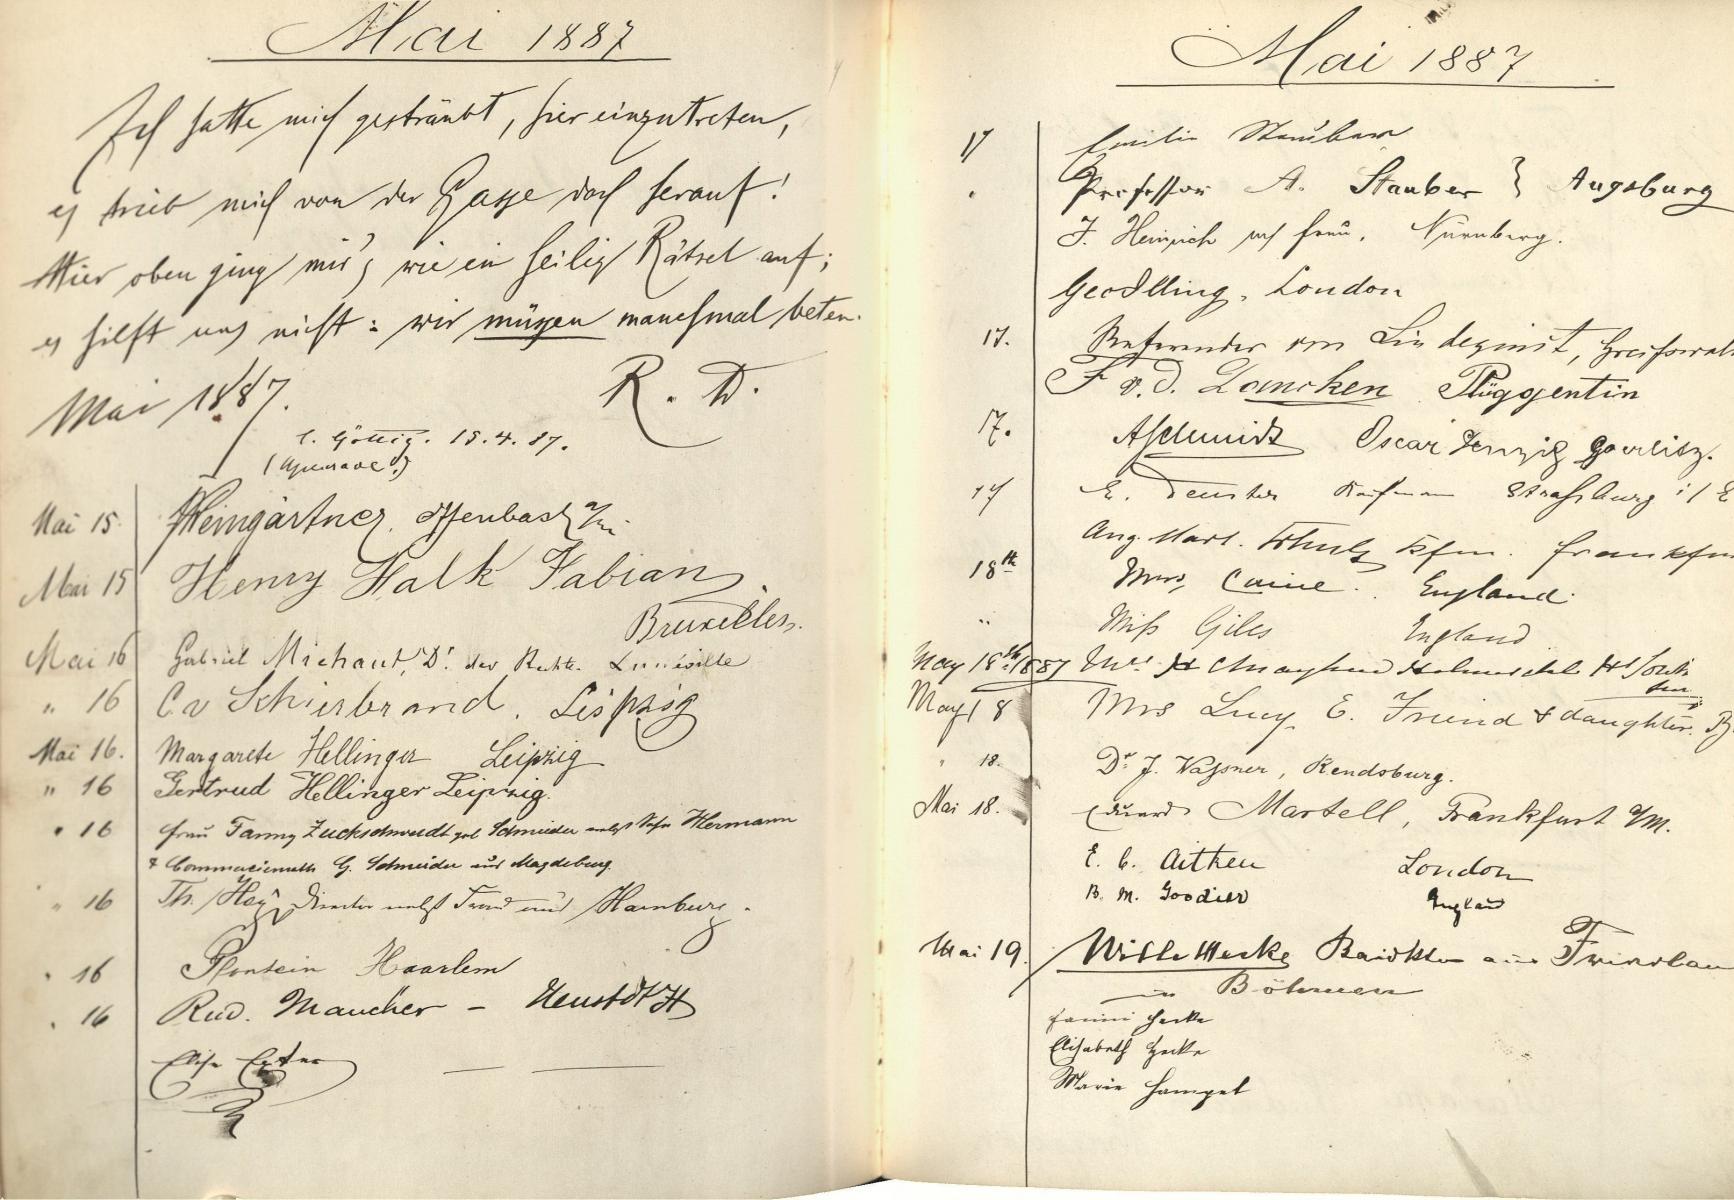 Mai 1887
Ich hatte mich gesträubt, hier einzutreten,
es trieb mich von der Gasse doch herauf!
Hier oben ging mir's wie ein heilig Rätsel auf;
es hilft uns nicht: wir müssen manchmal beten.
Mai 1887. R. D.
15.4.87.
Mai 15. Weingärtner, Offenbach a/m.
Mai 15 Henry Falk Fabian
Bruxelles.
Mai 16 Gabriel Michaut, Dr. der Rechte. Lunéville
" 16 C v Schierbrand. Leipzig
Mai 16. Margarete Hellinger Leipzig
" 16 Gertrud Hellinger Leipzig.
" 16 Frau Fanny Zuckschwerdt geb Schneider nebst Sohn Hermann
& Commerzienrath G. Schneider aus Magdeburg.
" 16 Th. Hey, Director nebst Frau aus Hamburg.
" 16 Haarlem
" 16 Rud. Mancher –
Mai 1887
17 Emilie Stauber
Professor A. Stauber } Augsburg
J. Heinrich mit Frau, Nürnberg.
Geo Illing, London
17. Referendar von Lindequist, Greifswald
F v. d. Lancken Plüggentin
17. ASchmidt Oscar Goerlitz.
17 E. Kaufmann Strassburg i/E
Aug. Mart. Schulz Kfm. Frankfu
18th Mrs, Caine. England.
" Miss Giles England
May 18th 1887 Mrs
May 18 Mrs Lucy E. Friend & daughter.
" 18. Dr. J. Wassner, Rendsburg.
Mai 18. Eduard Martell, Frankfurt a/M.
E. C. Aitken London
B. M. Goodier England
Mai 19. Wilh Hecke aus
in Böhmen
Fanni Hecke
Elisabeth Hecke
Marie Hampel